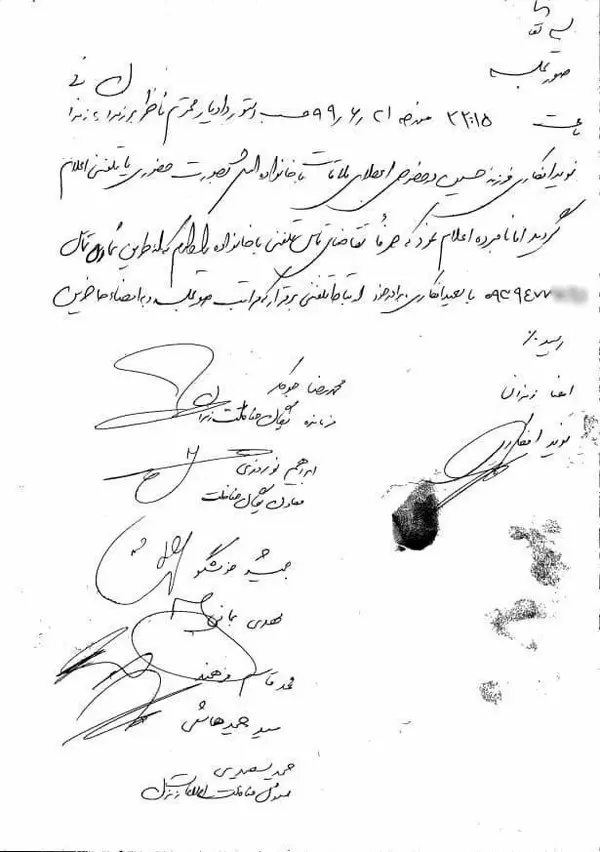 صورتجلسه
ساعت ۲۲:۱۵ مورخه ۹۹/۶/۲۱ حسب دستور دادیار محترم ناظر بر زندان
نوید افکاری فرزند حسین درخصوص اعطای ملاقات با خانواده اش بصورت حضوری یا تلفنی اعلام
گردید اما نامبرده اعلام نمود که صرفاً تقاضای تماس تلفنی با خانواده را دارم که از طریق شماره تماس
۰۹۳۹۴۷۷ با سعید افکاری برادر خود ارتباط تلفنی برقرار که مراتب صورتجلسه و به امضاء حاضرین
رسید٪
امضا زندانی
نوید افکاری
محمدرضا
فرمانده یگان حفاظت زندان
ابراهیم نوروزی
معاون یگان حفاظت
جمشید
مهدی
محمد قاسم
سید حمید هاشمی
مسئول حفاظت اطلاعات زندان